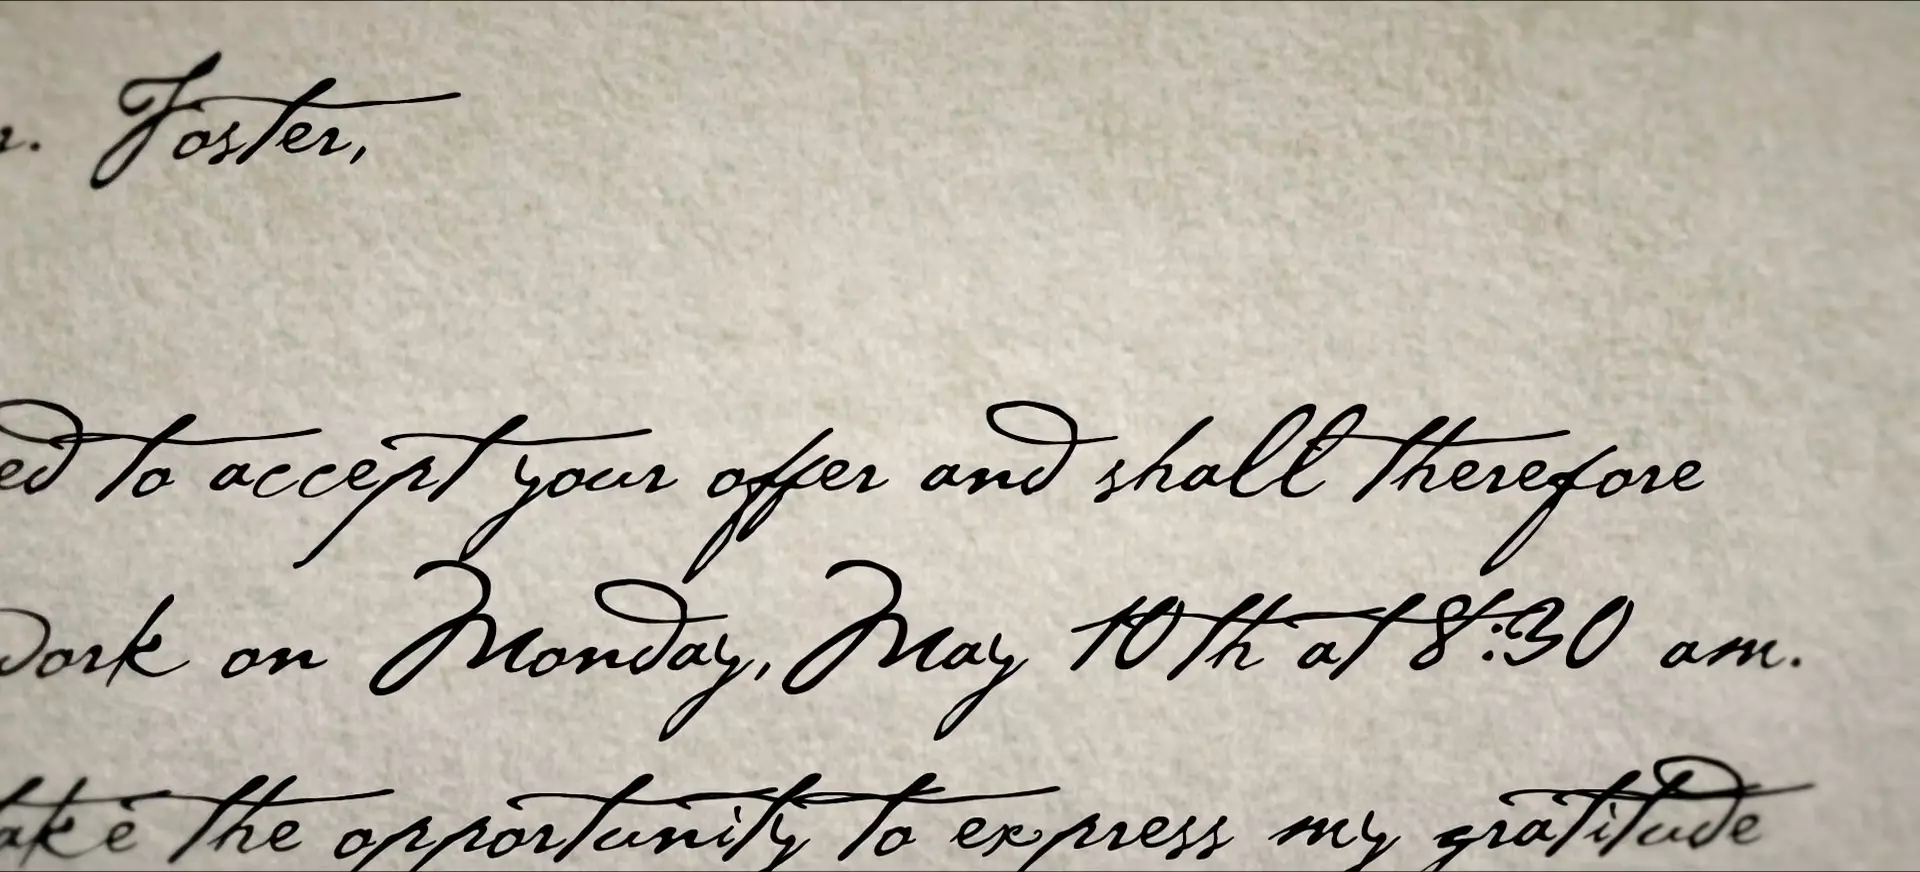 r. Foster,
ed to accept your offer and shall therefore
work on Monday, May 10th at 8:30 am.
ake the opportunity to express my gratitude